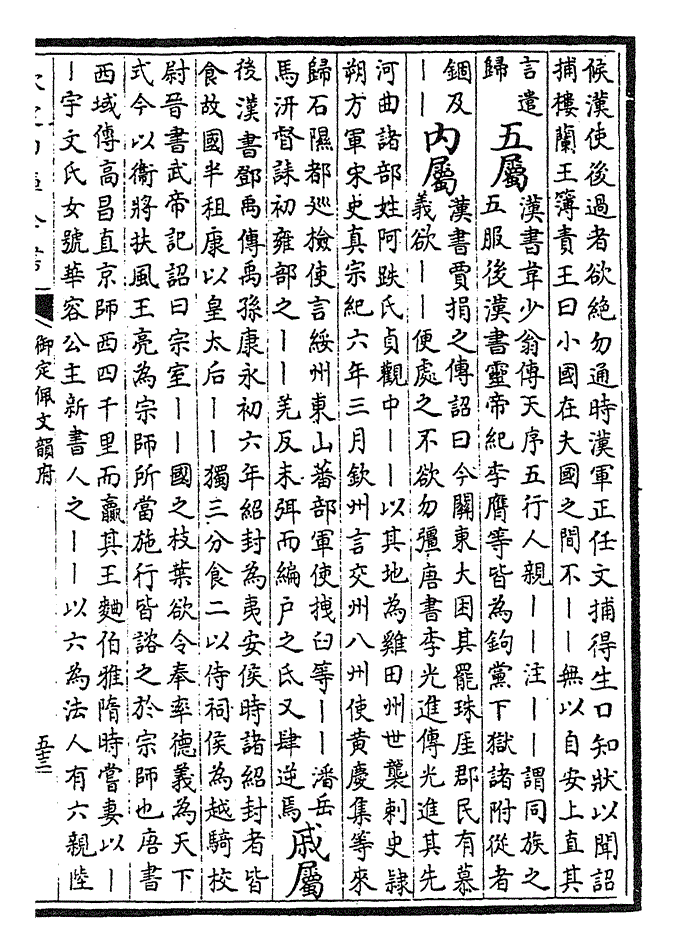 候漢使後過者欲絶勿通時漢軍正任文捕得生口知狀以聞詔
捕樓蘭王簿責王曰小國在大國之間不丨丨無以自安上直其
言遣
歸
五屬
漢書韋少翁傳天序五行人親丨丨注丨丨謂同族之
五服後漢書靈帝紀李膺等皆為鉤黨下獄諸附從者
錮及
丨丨
內屬
漢書賈捐之傳詔曰今關東大困其罷珠厓郡民有慕
義欲丨丨便處之不欲勿彊唐書李光進傳光進其先
河曲諸部姓阿跌氏貞觀中丨丨以其地為雞田州世襲刺史隷
朔方軍宋史真宗紀六年三月欽州言交州八州使黃慶集等來
歸石隰都廵檢使言綏州東山蕃部軍使拽臼等丨丨潘岳
馬汧督誄初雍部之丨丨羌反未弭而編户之氐又肆逆焉
戚屬
後漢書鄧禹傳禹孫康永初六年紹封為夷安侯時諸紹封者皆
食故國半租康以皇太后丨丨獨三分食二以侍祠侯為越騎校
尉晉書武帝記詔曰宗室丨丨國之枝葉欲令奉率德義為天下
式今以衞將扶風王亮為宗師所當施行皆諮之於宗師也唐書
西域傳高昌直京師西四千里而贏其王麴伯雅隋時嘗妻以丨
丨宇文氏女號華容公主新書人之丨丨以六為法人有六親陸
御定佩文韻府
五十三